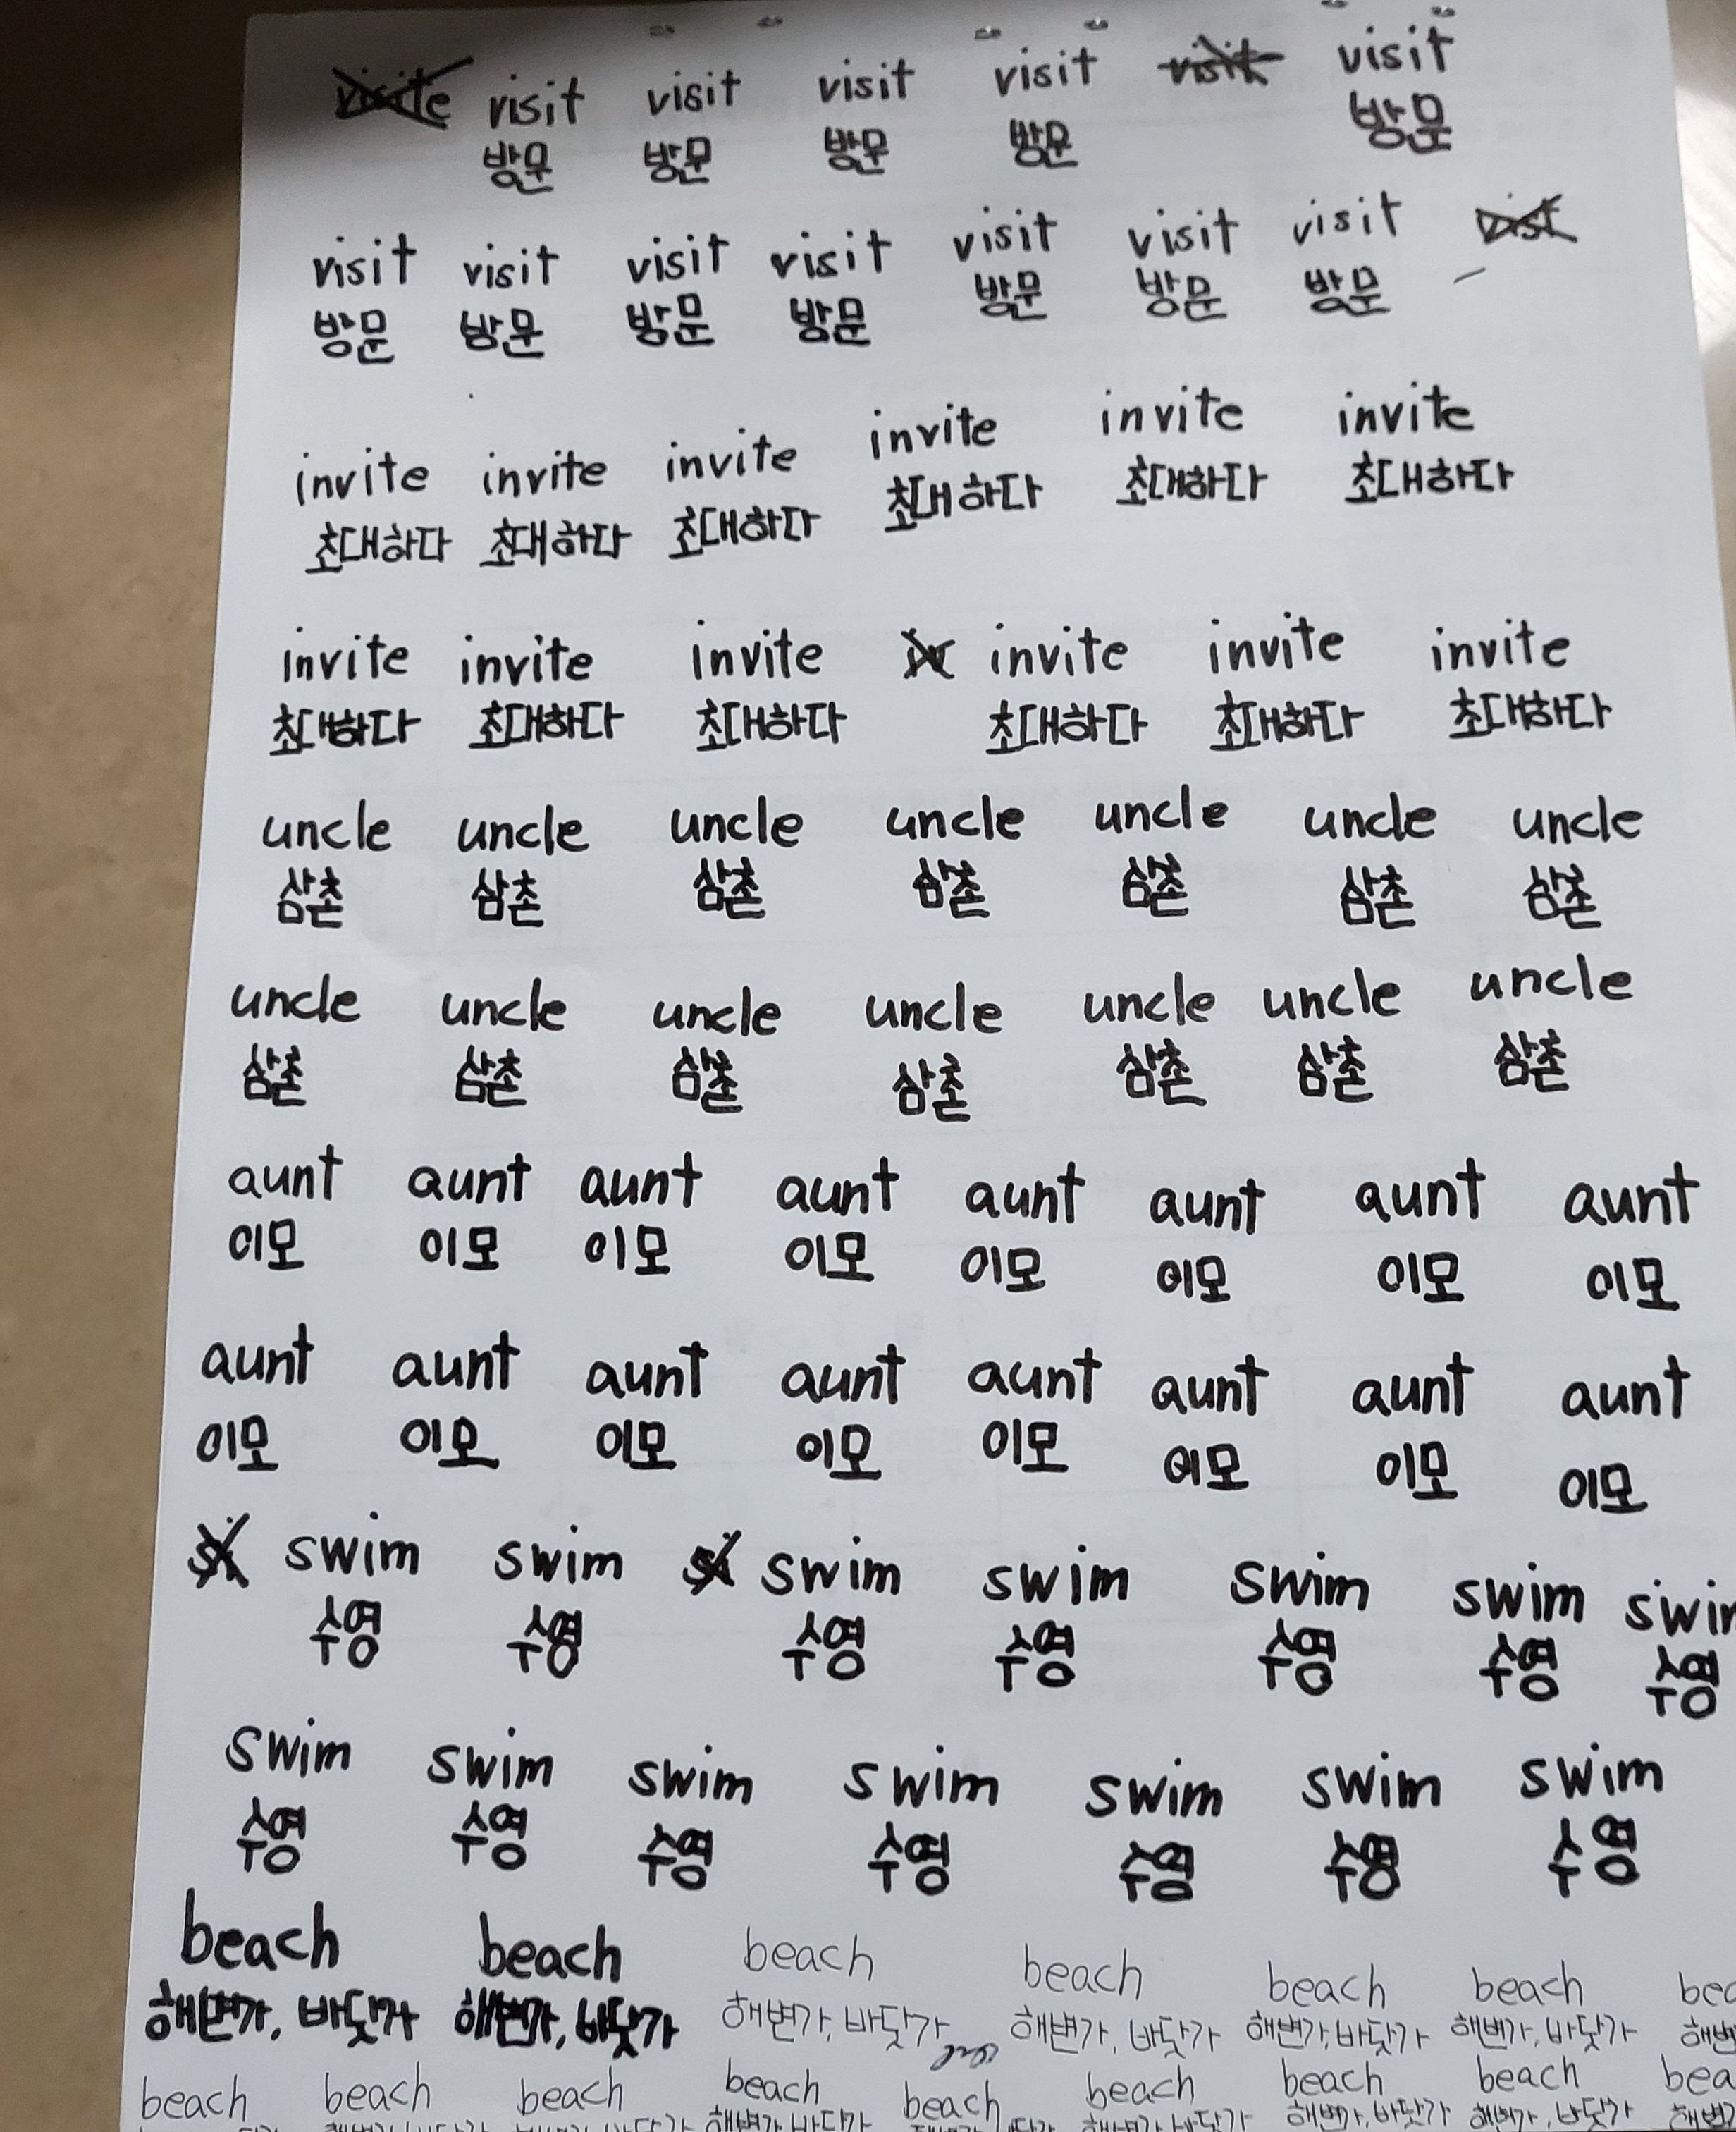 visit visit visit visit visit
방문 방문 방문 방문 방문
visit visit visit visit visit visit visit
방문 방문 방문 방문 방문 방문 방문
invite invite invite invite invite invite
초대하다 초대하다 초대하다 초대하다 초대하다 초대하다
invite invite invite invite invite invite
초대하다 초대하다 초대하다 초대하다 초대하다 초대하다
uncle uncle uncle uncle uncle uncle uncle
삼촌 삼촌 삼촌 삼촌 삼촌 삼촌 삼촌
uncle uncle uncle uncle uncle uncle uncle
삼촌 삼촌 삼촌 삼촌 삼촌 삼촌 삼촌
aunt aunt aunt aunt aunt aunt aunt aunt
이모 이모 이모 이모 이모 이모 이모 이모
aunt aunt aunt aunt aunt aunt aunt aunt
이모 이모 이모 이모 이모 이모 이모 이모
swim swim swim swim swim swim swim
수영 수영 수영 수영 수영 수영 수영
swim swim swim swim swim swim swim
수영 수영 수영 수영 수영 수영 수영
beach beach beach beach beach beach bea
해변가, 바닷가 해변가, 바닷가 해변가, 바닷가 해변가, 바닷가 해변가, 바닷가 해변가, 바닷가 해변
beach beach beach beach beach beach beach beach bea
해변가, 바닷가 해변가, 바닷가 해변가, 바닷가